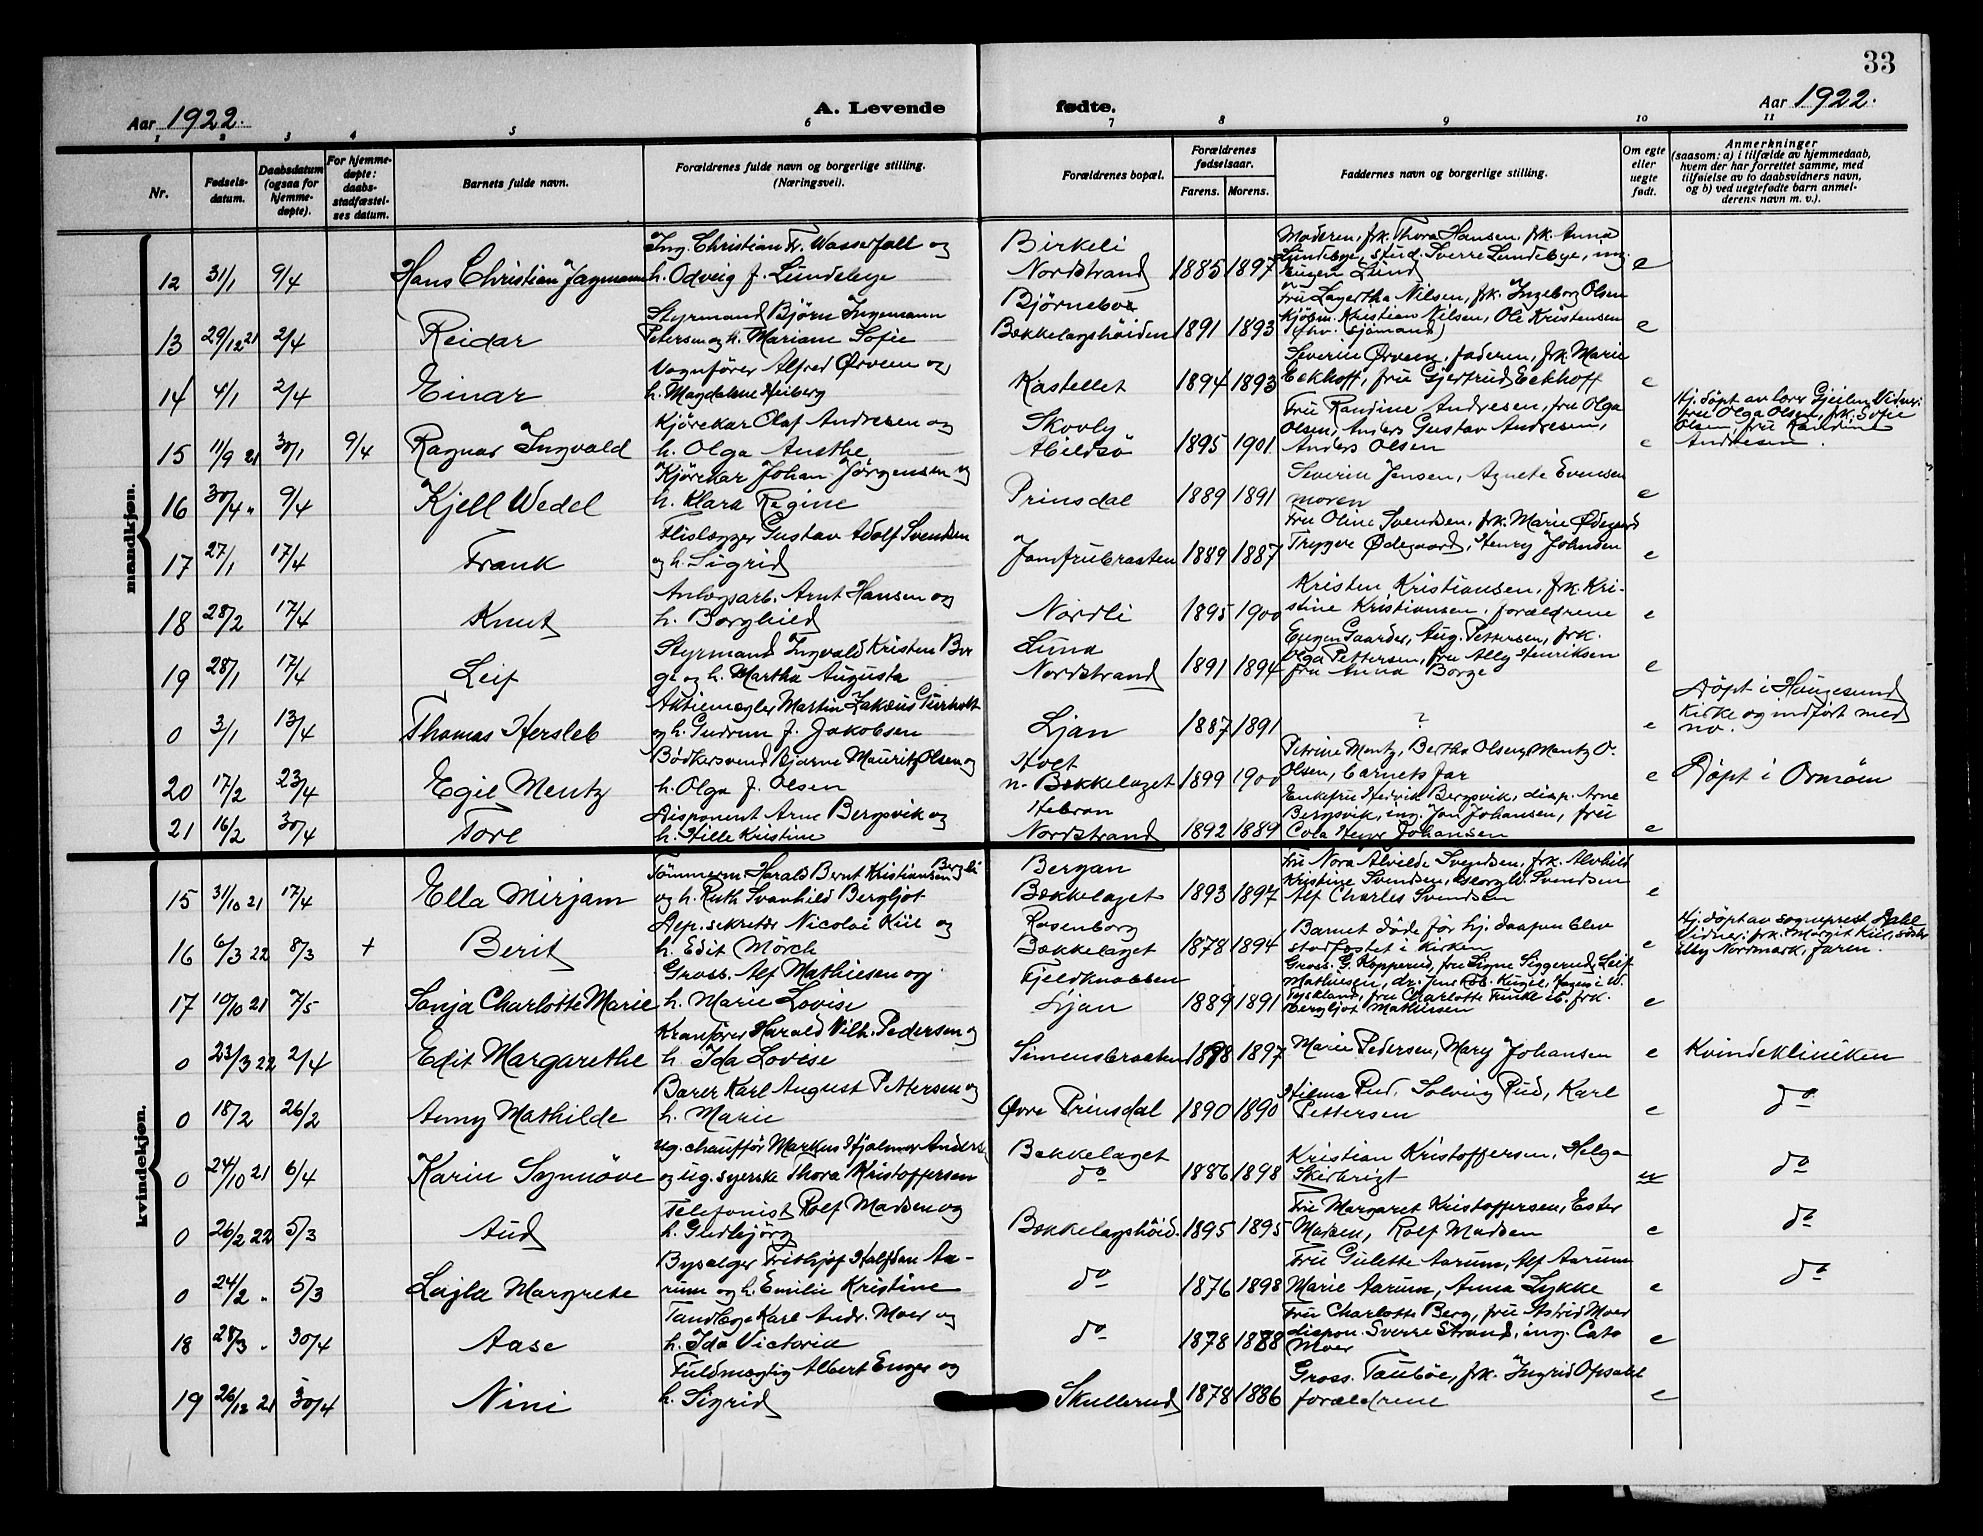 33
Aar 1922. A. Levende fødte. Aar 1922.
1 2 3 4 5 6 7 8 9 10 11
Nr.
Fødsels-
datum.
Daabsdatum
(ogsaa for
hjemme-
døpte).
For hjemme-
døpte:
daabs-
stadfæstel-
ses datum.
Barnets fulde navn.
Forældrenes fulde navn og borgerlige stilling.
(Næringsvei).
Forældrenes bopæl.
Forældrenes
fødselsaar.
Farens. Morens.
Faddernes navn og borgerlige stilling.
Om egte
eller
uegte
født.
Anmerkninger
(saasom: a) i tilfælde av hjemmedaab,
hvem der har forrettet samme, med
tilføielse av to daabsvidners navn,
og b) ved uegtefødte barn anmel-
derens navn m. v.).
mandkjøn.
12 31/1 9/4 Hans Christian
Ing. Christian Fr. Wasserfall og
h. Odveig f. Lundebye
Birkeli
Nordstrand 1885 1897
Moderen, frk. Thora Hansen, frk. Anna
Lundebye, stud. Sverre Lundebye, ing.
Eugen Lund
e
13 29/12 21 2/4 Reidar
Styrmand Björn Ingemann
Petersen og h. Mariane Sofie
Björnebo
Bækkelagshöiden 1891 1893
Fru Lagertha Nilsen, frk. Ingeborg Olsen
Kjöbm. Kristian Nilsen, Ole Kristensen
(fhv. sjömand)
e
14 4/1 2/4 Einar
Vognfører Alfred Ørveen og
h. Magdalene Heiberg
Kastellet 1894 1893
Severin Ørveen, faderen, frk. Marie
Eckhoff, fru Gjertrud Eckhoff
e
15 11/9 21 30/1 9/4 Ragnar Ingvald
Kjörekar Olaf Andresen og
h. Olga Anethe
Skovly
Hildsö 1895 1901
Fru Randine Andresen, fru Olga
Olsen, Anders Gustav Andresen,
Anders Olsen
e
Hj. döpt av lærer Gjeilen, Vidner:
fru Olga Olsen, frk. Sofie
Olsen, fru Randine
Andresen.
16 30/4 " 9/4 Kjell Wedel
Kjörekar Johan Jörgensen og
h. Klara Regine
Prinsdal 1889 1891
Severin Jensen, Agnete Evensen
moren
e
17 27/1 17/4 Frank
Flislægger Gustav Adolf Svendsen
og h. Sigrid
Jomfrubraaten 1889 1887
Fru Oline Svendsen, frk. Marie Ødegaard
Trygve Ødegaard, Henry Johnsen
e
18 28/2 17/4 Knut
Anlægsarb. Arnt Hansen og
h. Borghild
Nordli 1895 1900
Kristen Kristiansen, frk. Kri-
stine Kristiansen, forældrene
e
19 28/1 17/4 Leif
Styrmand Ingvald Kristen Bor
ge og h. Martha Augusta
Luna
Nordstrand 1891 1894
Eugen Gaarder, Aug. Pettersen, frk.
Olga Pettersen, fru Ally Henriksen
fru Anna Borge
e
0 3/1 13/4 Thomas Hersleb
Aktiemægler Martin Zakæus
og h. Gudrun f. Jakobsen
Ljan 1887 1891
?
e
Döpt i Haugesund
Kirke og indført med
no.
20 17/2 23/4 Egil Mentz
Bödkersvend Bjarne Mauritz Olsen og
h. Olga f. Olsen
Holt
n. Bækkelaget 1899 1900
Petrine Mentz, Bertha Olsen, Mentz O.
Olsen, barnets far
e Döpt i Ormöen
21 16/2 30/4 Tore
Disponent Arne Bergsvik og
h. Hille Kristine
Hebron
Nordstrand 1892 1889
Enkefru Hedvik Bergsvik, disp. Arne
Bergsvik, ing. Jon Johansen, fru
Cola Heyer Johansen
e
kvindekjøn.
15 31/10 21 17/4 Ella Mirjam
Tömmerm. Harald Bernt Kristiansen Bergli
og h. Ruth Svanhild Bergljot
Bergan
Bækkelaget 1893 1897
Fru Nora Alvilde Svendsen, frk. Alvhild
Kristine Svendsen, Georg W. Svendsen
Alf Charles Svendsen
e
16 6/3 22 8/3 + Berit
Dep. sekretær Nicolai Kiil og
h. Edit Mörch
Rosenborg
Bækkelaget 1878 1894
Barnet döde för hj. daapen blev
stadfestet i kirken
e
Hj. döpt av sogneprest Dahl
Vidner: frk. Margit Kiil, söster
Elly Nordmark, faren.
17 10/10 21 7/5 Sonja Charlotte Marie
Gross. Alf Mathiesen og
h. Marie Lovise
Fjeldknabben
Ljan 1889 1891
Gross. G. Kopperud, fru Signe Siggerud, Leif
Mathiesen, dr.
Tyskland, fru Charlotte
Bergljot Mathiesen
e
0 23/3 22 2/4 Edit Margarethe
Kranförer Harald Vilh. Pedersen og
h. Ida Lovise
Simensbraaten 1898 1897
Marie Pedersen, Mary Johansen e Kvindekliniken
0 18/2 26/2 Anny Mathilde
Bører Karl August Pettersen og
h. Marie
Øvre Prinsdal 1890 1890
Hilma Rud, Solveig Rud, Karl
Pettersen
e do
0 24/10 21 6/4 Karin Synnöve
ug. chauffør Markus Hjalmar Anders.
og ug. syerske Thora Kristoffersen
Bækkelaget
do 1886 1898
Kristian Kristoffersen, Helga
Skirbrigt
u do
0 26/2 22 5/3 Aud
Telefonist Rolf Madsen og
h. Gudbjörg
Bækkelagshöid. 1895 1895
Fru Margaret Kristoffersen, Ester
Madsen, Rolf Madsen
e do
0 24/2 " 5/3 Lajla Margrete
Bysælger Fritjof Halfdan Aa-
rum og h. Emilie Kristine
do 1876 1898
Fru Gulette Aarum, Alf Aarum
Marie Aarum, Anna Lykke
e do
18 28/3 " 30/4 Aase
Tandlæge Karl Andr. Moer og
h. Ida Victoria
do 1878 1888
Fru Charlotte Berg, fru Astrid Moer
dispon. Sverre Strand, ing. Cato
Moer
e
19 26/12 21 30/4 Nini
Fuldmægtig Albert Enger og
h. Sigrid
Skullerud 1878 1886
Gross. Tauböe, frk. Ingrid Opsahl
forældrene
e